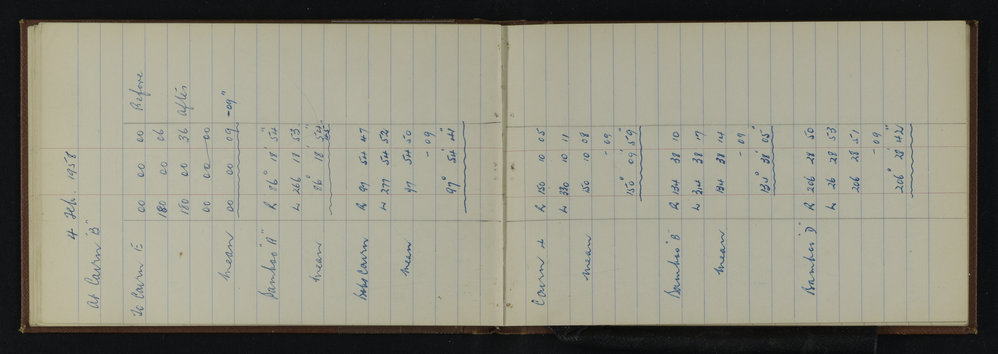 4 Feb. 1958
At Cairn "B"
To Cairn E 00 00 00 Before
180 00 06
180 00 36 After
00 00 00
Mean 00 00 09 -09"
Bamboo "A" R 86° 18' 54"
L 266 18 53
Mean 86° 18'
R 97 54 47
L 277 54 52
Mean 97 54 50
- 09
97° 54' 41"
Cairn R 150 10 05
L 330 10 11
Mean 150 10 08
- 09
150° 09' 59"
Bamboo "B" R 134 38 10
L 314 38 17
Mean 134 38 14
- 09
134° 38' 05"
Bamboo "D" R 206 28 50
L 26 28 53
206 28 51
- 09
206° 28' 42"